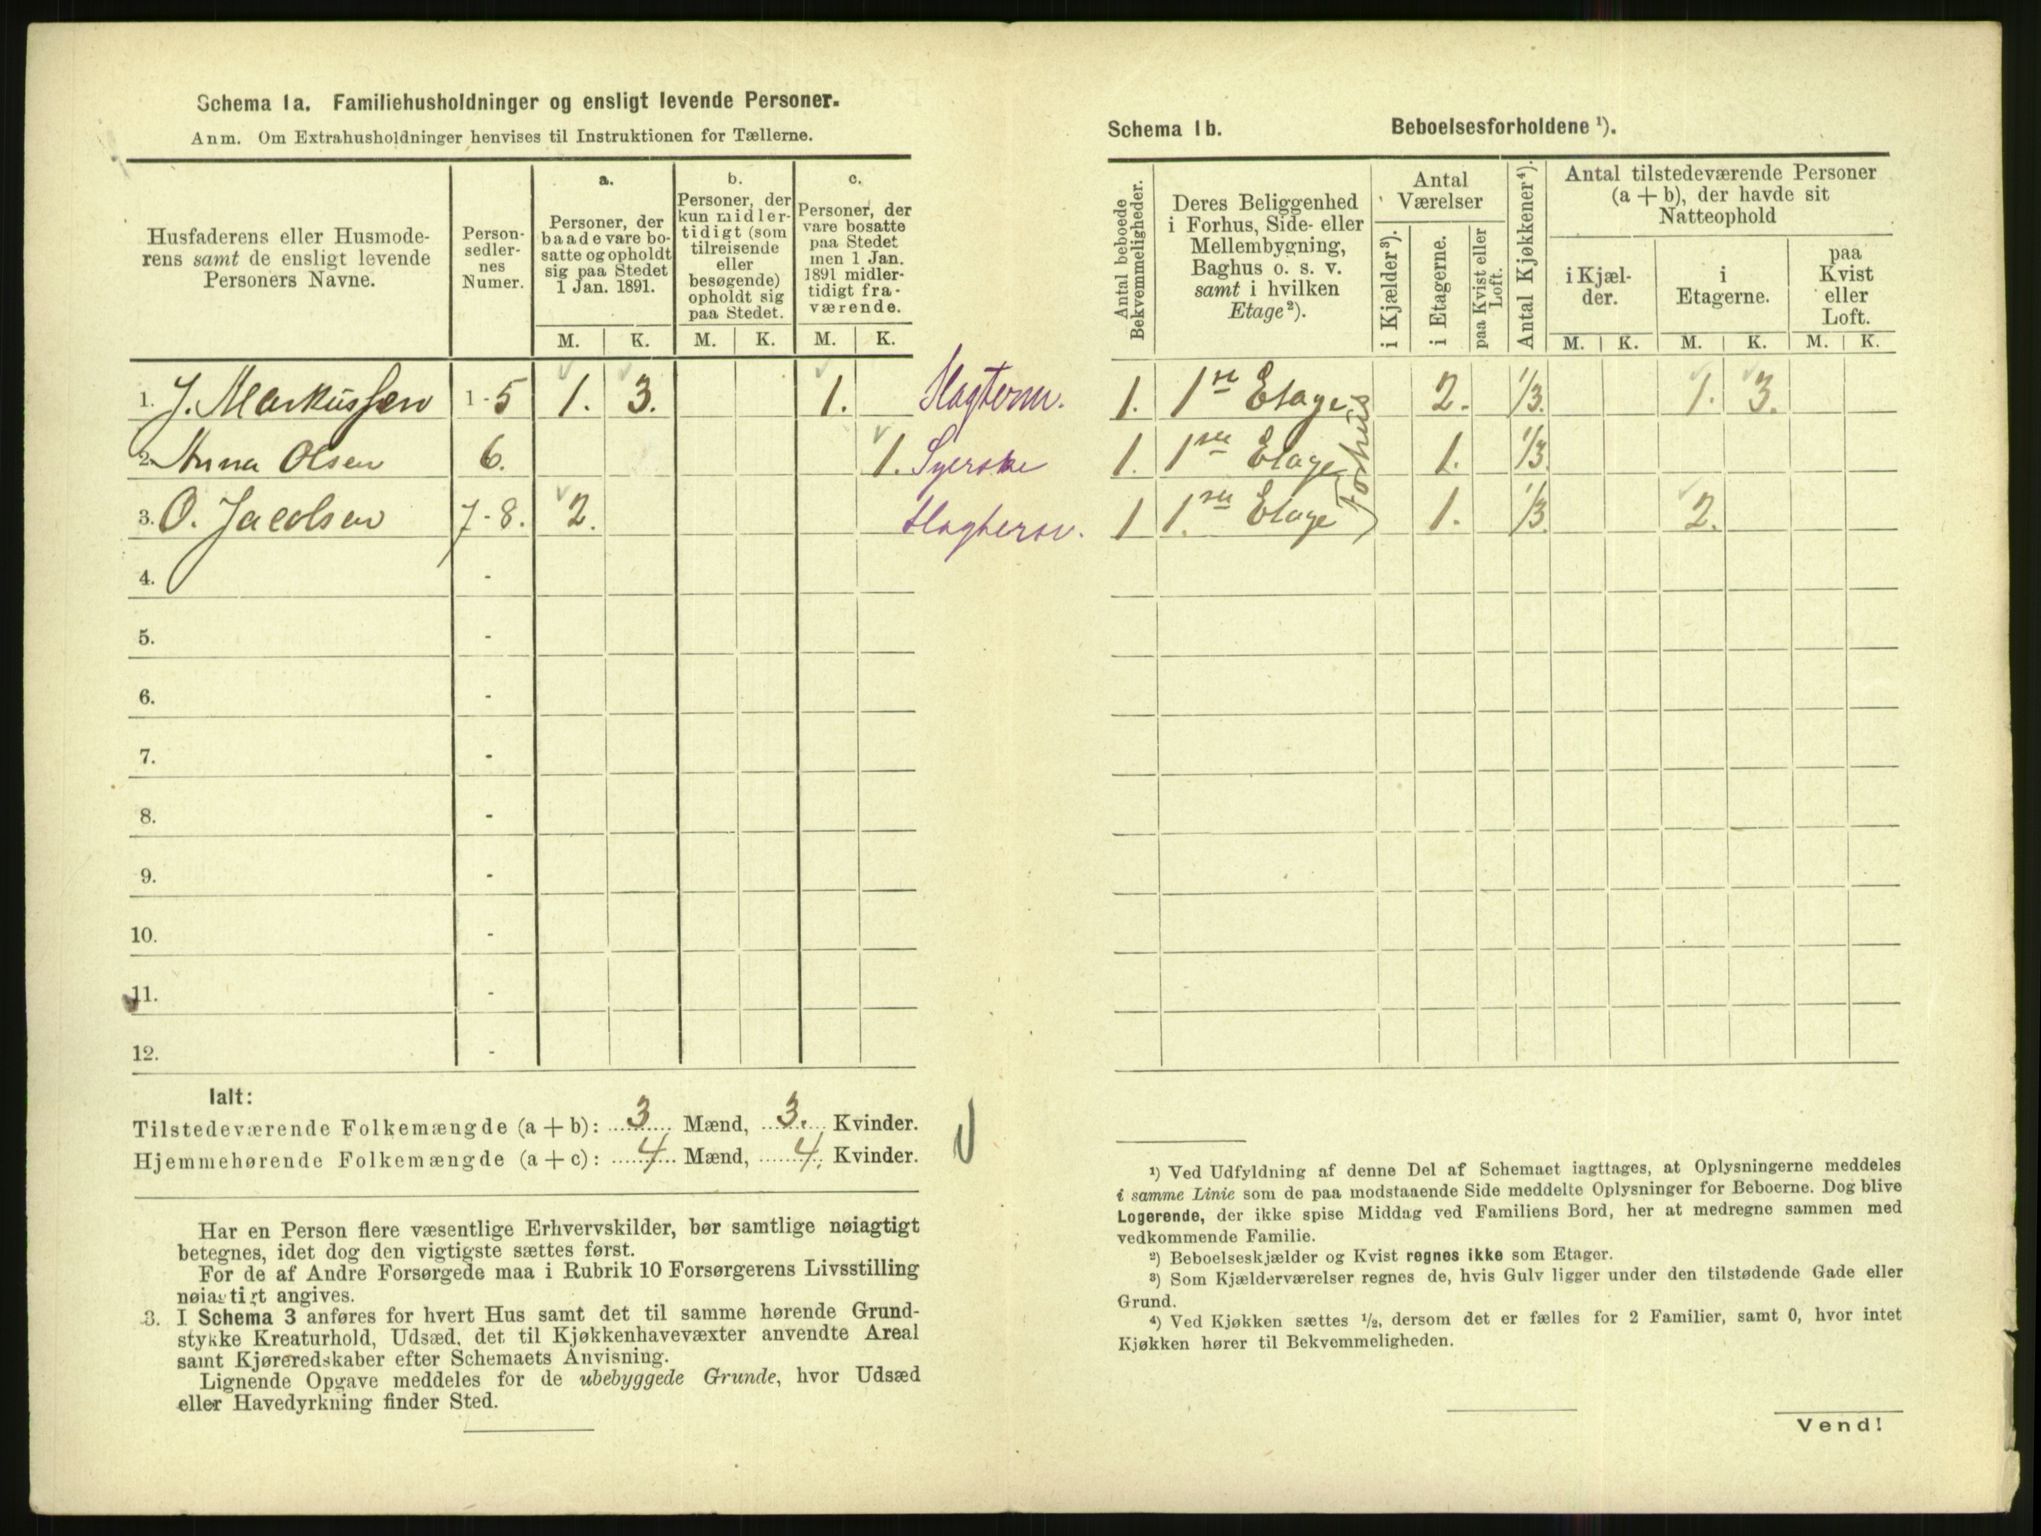 Schema 1a. Familiehusholdninger og ensligt levende Personer.
Anm. Om Extrahusholdninger henvises til Instruktionen for Tællerne.
Husfaderens eller Husmode-
rens samt de ensligt levende
Personers Navne.
Person-
sedler-
nes
Numer.
a.
Personer, der
baade vare bo-
satte og opholdt
sig paa Stedet
1 Jan. 1891.
b.
Personer, der
kun midler-
tidigt (som
tilreisende
eller
besøgende)
opholdt sig
paa Stedet.
c.
Personer, der
vare bosatte
paa Stedet
men 1 Jan.
1891 midler-
tidigt fra-
værende.
M. K. M. K. M. K.
1. J. Markussen 1-5 1. 3. 1.
2. Anna Olsen 6. 1. Syerske
3. O. Jacobsen 7-8. 2.
4. -
5. -
6. -
7. -
8. -
9. -
10. -
11. -
12. -
Ialt:
Tilstedeværende Folkemængde (a + b): 3 Mænd, 3. Kvinder.
Hjemmehørende Folkemængde (a + c): 4 Mænd, 4. Kvinder.
Har en Person flere væsentlige Erhvervskilder, bør samtlige nøiagtigt
betegnes, idet dog den vigtigste sættes først.
For de af Andre Forsørgede maa i Rubrik 10 Forsørgerens Livsstilling
nøiagtigt angives.
3. I Schema 3 anføres for hvert Hus samt det til samme hørende Grund-
stykke Kreaturhold, Udsæd, det til Kjøkkenhavevæxter anvendte Areal
samt Kjøreredskaber efter Schemaets Anvisning.
Lignende Opgave meddeles for de ubebyggede Grunde, hvor Udsæd
eller Havedyrkning finder Sted.
Schema 1b. Beboelsesforholdene ¹).
Antal beboede
Bekvemmeligheder.
Deres Beliggenhed
i Forhus, Side- eller
Mellembygning,
Baghus o. s. v.
samt i hvilken
Etage ²).
Antal
Værelser
i Kjælder ³).
i Etagerne.
paa Kvist eller
Loft.
Antal Kjøkkener ⁴).
Antal tilstedeværende Personer
(a + b), der havde sit
Natteophold
i Kjæl-
der.
i
Etagerne.
paa
Kvist
eller
Loft.
M. K. M. K. M. K.
1. 1ste Etage 2. 1/3. 1. 3.
1. 1ste Etage 1. 1/3.
1 1ste Etage 1. 1/3. 2.
Forhus
¹) Ved Udfyldning af denne Del af Schemaet iagttages, at Oplysningerne meddeles
i samme Linie som de paa modstaaende Side meddelte Oplysninger for Beboerne. Dog blive
Logerende, der ikke spise Middag ved Familiens Bord, her at medregne sammen med
vedkommende Familie.
²) Beboelseskjælder og Kvist regnes ikke som Etager.
³) Som Kjælderværelser regnes de, hvis Gulv ligger under den tilstødende Gade eller
Grund.
⁴) Ved Kjøkken sættes ½, dersom det er fælles for 2 Familier, samt 0, hvor intet
Kjøkken hører til Bekvemmeligheden.
Vend!